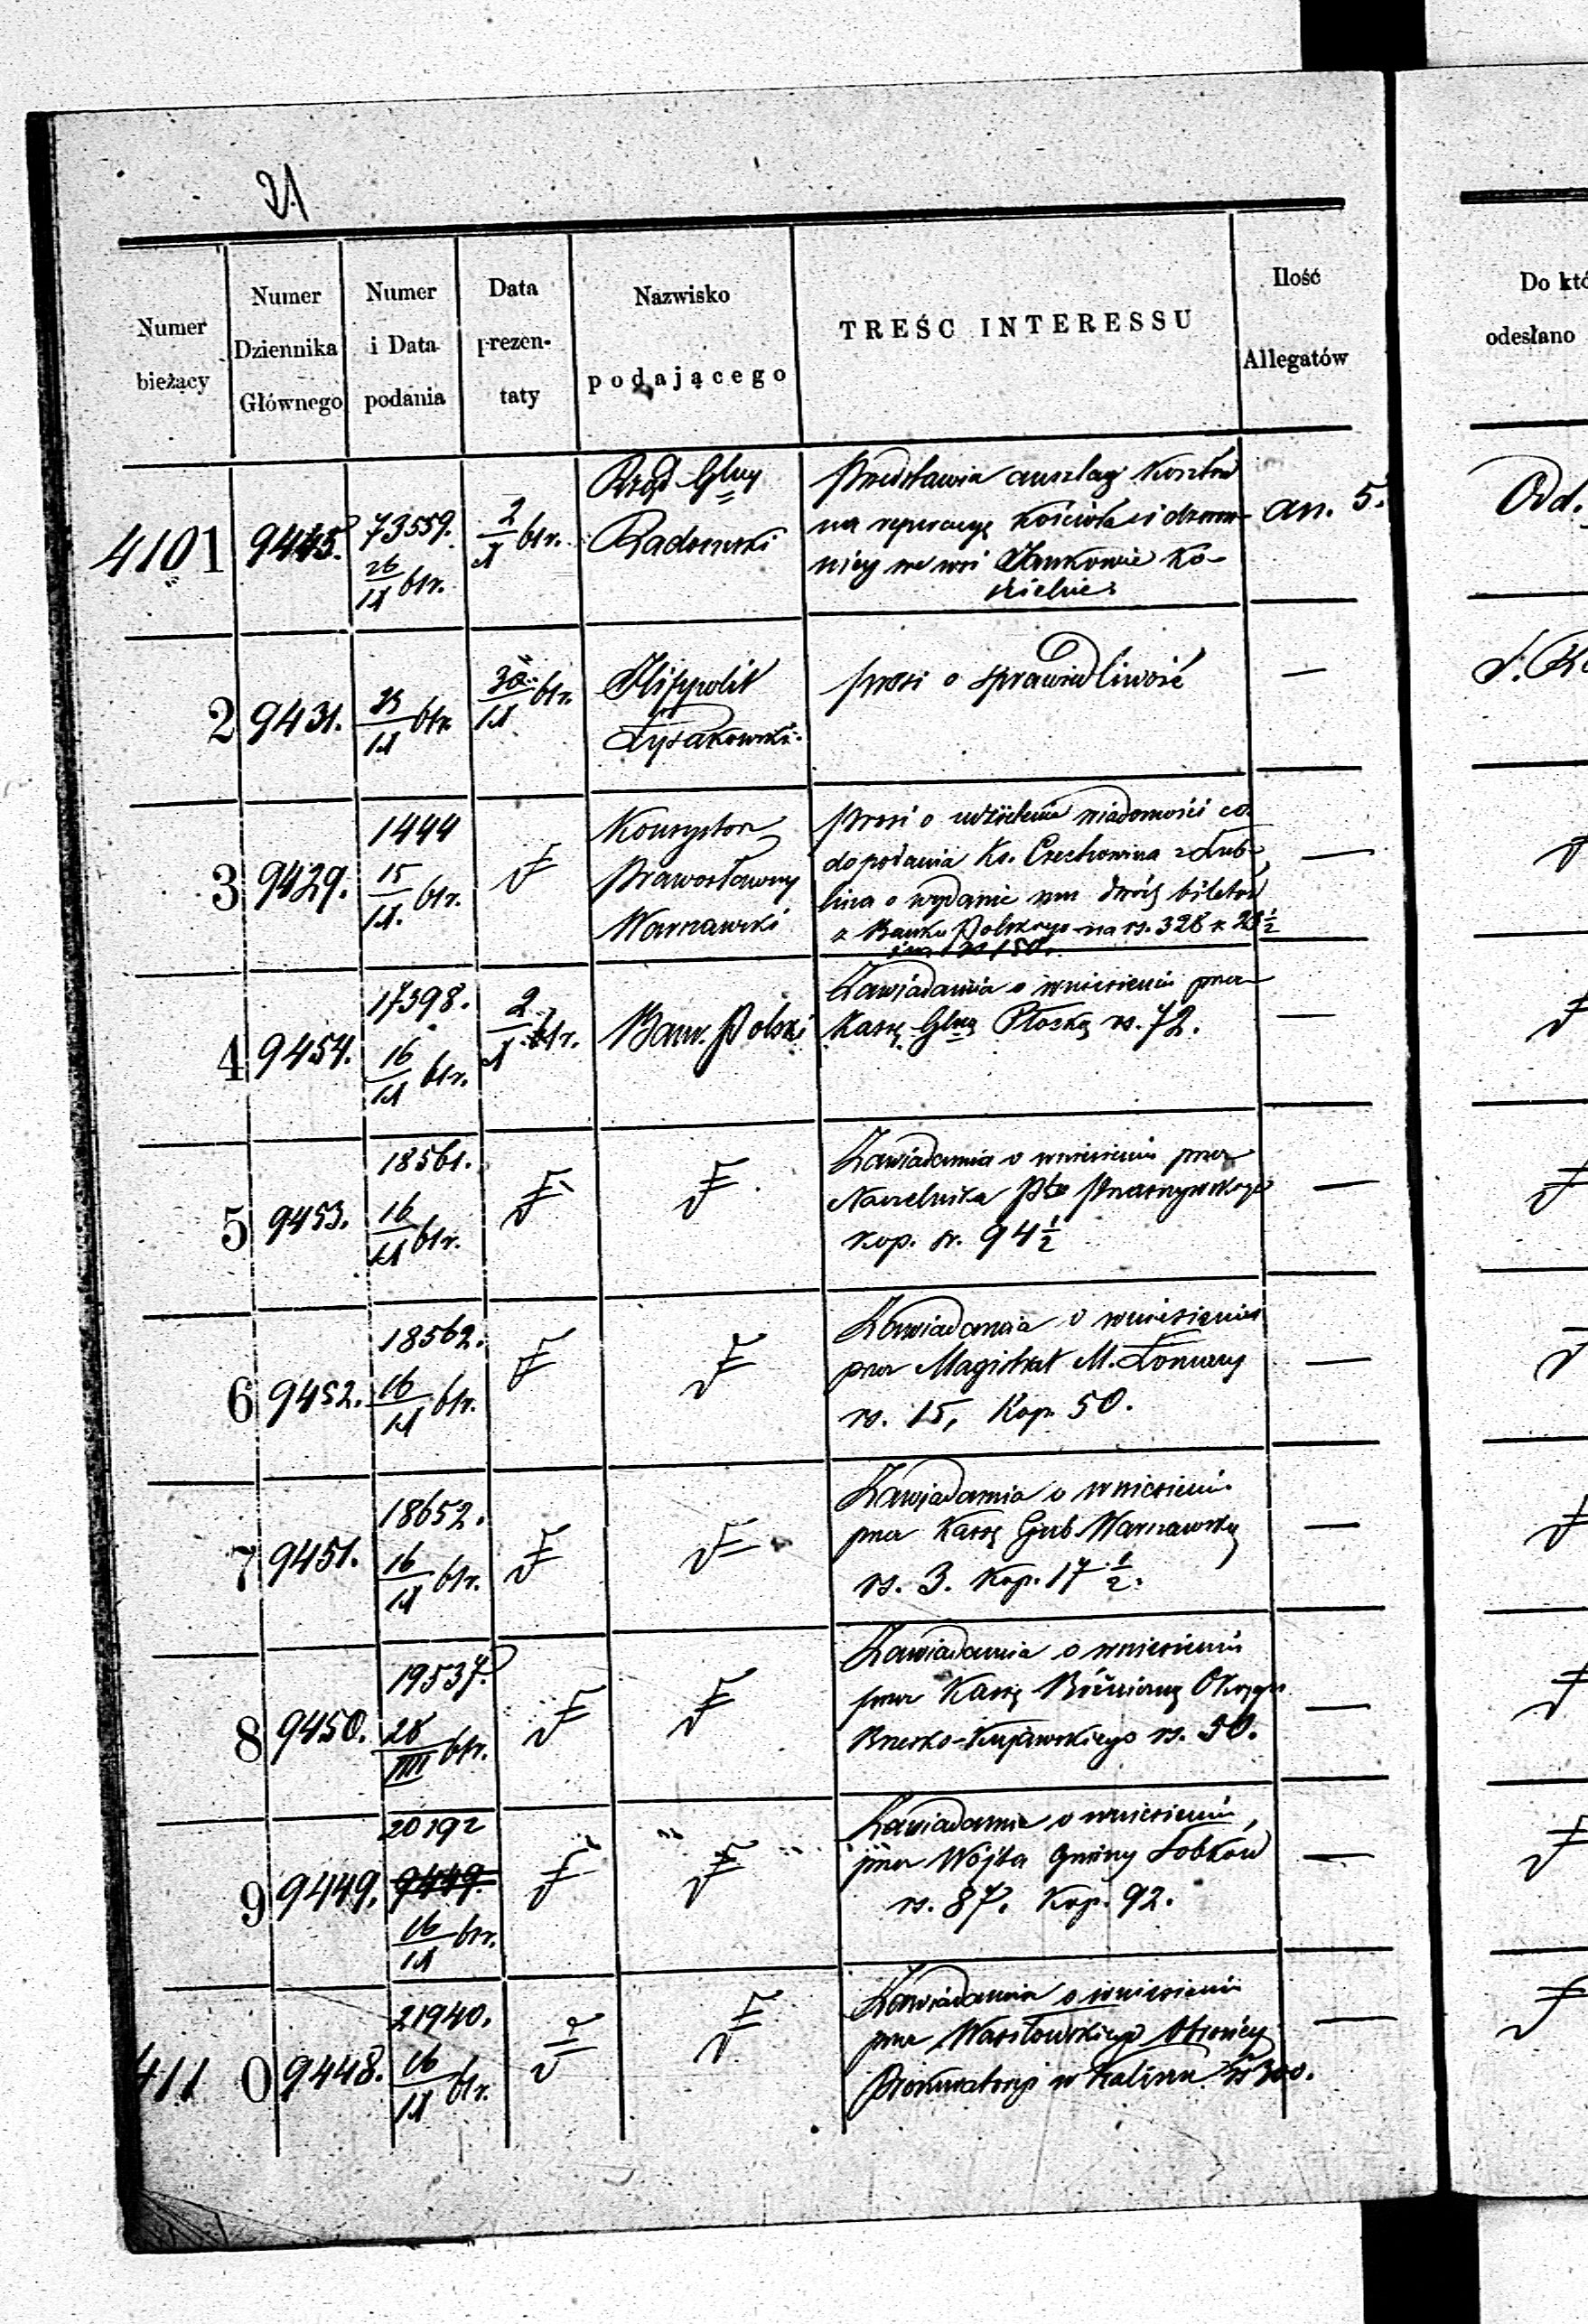 21
Numer bieżący
Numer Dziennika Głównego
Numer i Data podania
Data prezentaty
Nazwisko podającego
TREŚĆ INTERESSU
Ilość Allegatów
Do któ
odesłano
4101 9445. 73559. 26/11 btr. 2/1 btr.
Rząd Glny
Radomski
Przedstawia anszlag kosztów
na reperacyę kościoła i dzwon-
nicy we wsi Jankowie Ko-
ścielnie.
an. 5.
Od.
2 9431. 11 btr. 30/11 btr.
Hippolit
Łysakowski.
prosi o sprawiedliwość
—
3 9429. 1444 15/11. btr.
Konsystorz
Prawosławny
Warszawski
prosi o udzielenie wiadomości co
do podania Ks. Czechowina z Lub-
lina o wydanie mu dwóch biletów
z Banku Polskiego na rs. 328 k 28 1/2
i na rs 150.
—
4 9454. 17598. 16/11 btr. 2/1 btr.
Bank Polski
Zawiadamia o wniesieniu przez
Kassę Glną Płocką rs. 72.
—
5 9453. 18561. 16/11 btr.
Zawiadamia o wniesieniu przez
Naczelnika Ptu Przasnyskiego
kop. sr. 94 1/2
—
6 9452. 18562. 16/11 btr.
Zawiadamia o wniesieniu
przez Magistrat M. Łomży
rs. 15, Kop 50.
—
7 9451. 18652. 16/11 btr.
Zawiadamia o wniesieniu
przez Kassę Gub Warszawską
rs. 3. Kop. 17 1/2.
—
8 9450. 19537. 28/ btr.
Zawiadamia o wniesieniu
przez Kassę Bóżniczną Okręgu
Brzesko-Kujawskiego rs. 50.
—
9 9449. 20192 9449. 16/11 btr.
Zawiadamia o wniesieniu,
przez Wójta Gminy Sobków
rs. 87. Kop. 92.
—
4110 9448. 21940. 16/11 btr.
Zawiadamia o wniesieniu
przez Wasiłowskiego Obrońcę
Prokuratoryi w Kaliszu rs 300.
—